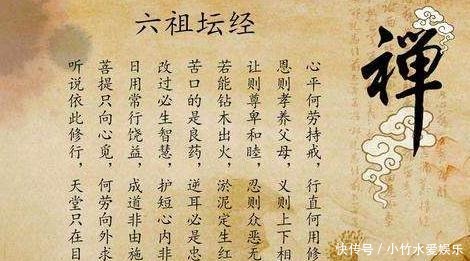 六祖坛经
禅
心平何劳持戒，行直何用修
恩则孝养父母，义则上下相
让则尊卑和睦，忍则众恶无
若能钻木出火，淤泥定生红
苦口的是良药，逆耳必是忠
改过必生智慧，护短心内非
日用常行饶益，成道非由施
菩提只向心觅，何劳向外求
听说依此修行，天堂只在目
快传号 / 小竹水爱娱乐